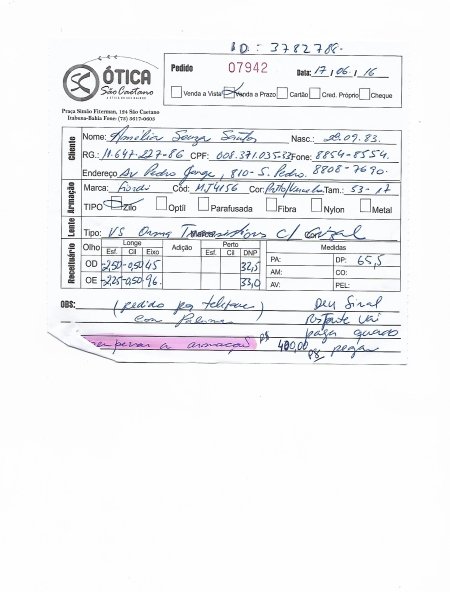 ID: 3782788.
ÓTICA
São Caetano
Pedido 07942 Data: 17/06/16
Venda a Vista Venda a Prazo Cartão Cred. Próprio Cheque
Praça Simão Fiterman, 124 São Caetano
Itabuna-Bahia Fone: (73) 3617-0605
Cliente
Nome: Amélia Souza Santos Nasc.: 29.09.83.
RG.: 11.647.227-86 CPF: 008.371.035-83 Fone: 8854-8554.
Endereço Av Pedro Jorge, 810-S. Pedro. 8808-7690.
Armação
Marca: Cód: MJ4156 Cor: Tam.: 53-17
TIPO Zilo Optil Parafusada Fibra Nylon Metal
Lente
Tipo: VS Transitions c/
Receituário
Olho Longe Adição Perto DNP Medidas
Esf. Cil Eixo Esf. Cil
OD -2,50 -0,50 45 32,5 PA: DP: 65,5
AM: CO:
OE -2,25 -0,50 96. 33,0 AV: PEL:
OBS: (pedido por telefone Deu Sinal
com restante vai
pagar quando
armação R$ 400,00 pegar